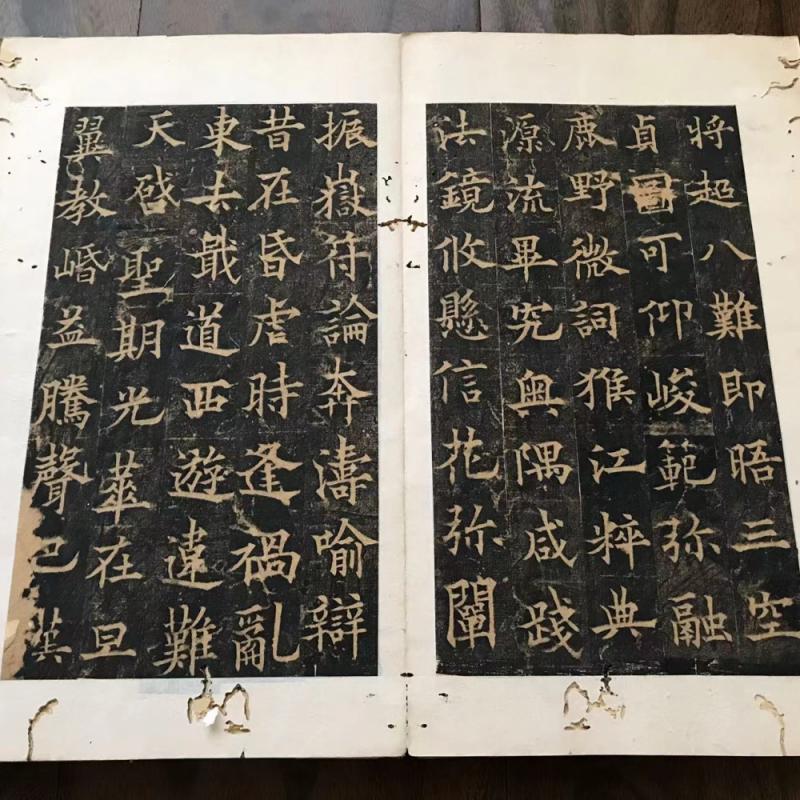 将超八難即晤三空
貞圖可仰峻範弥融
鹿野微詞猴江粹典
源流畢究奥隅咸踐
法鏡攸懸信花弥闡
振嶽符論奔濤喻辯
昔在昏虐時逢禍亂
東去戢道西遊違難
天啓聖期光華在旦
翼教崏益騰聲巴漢